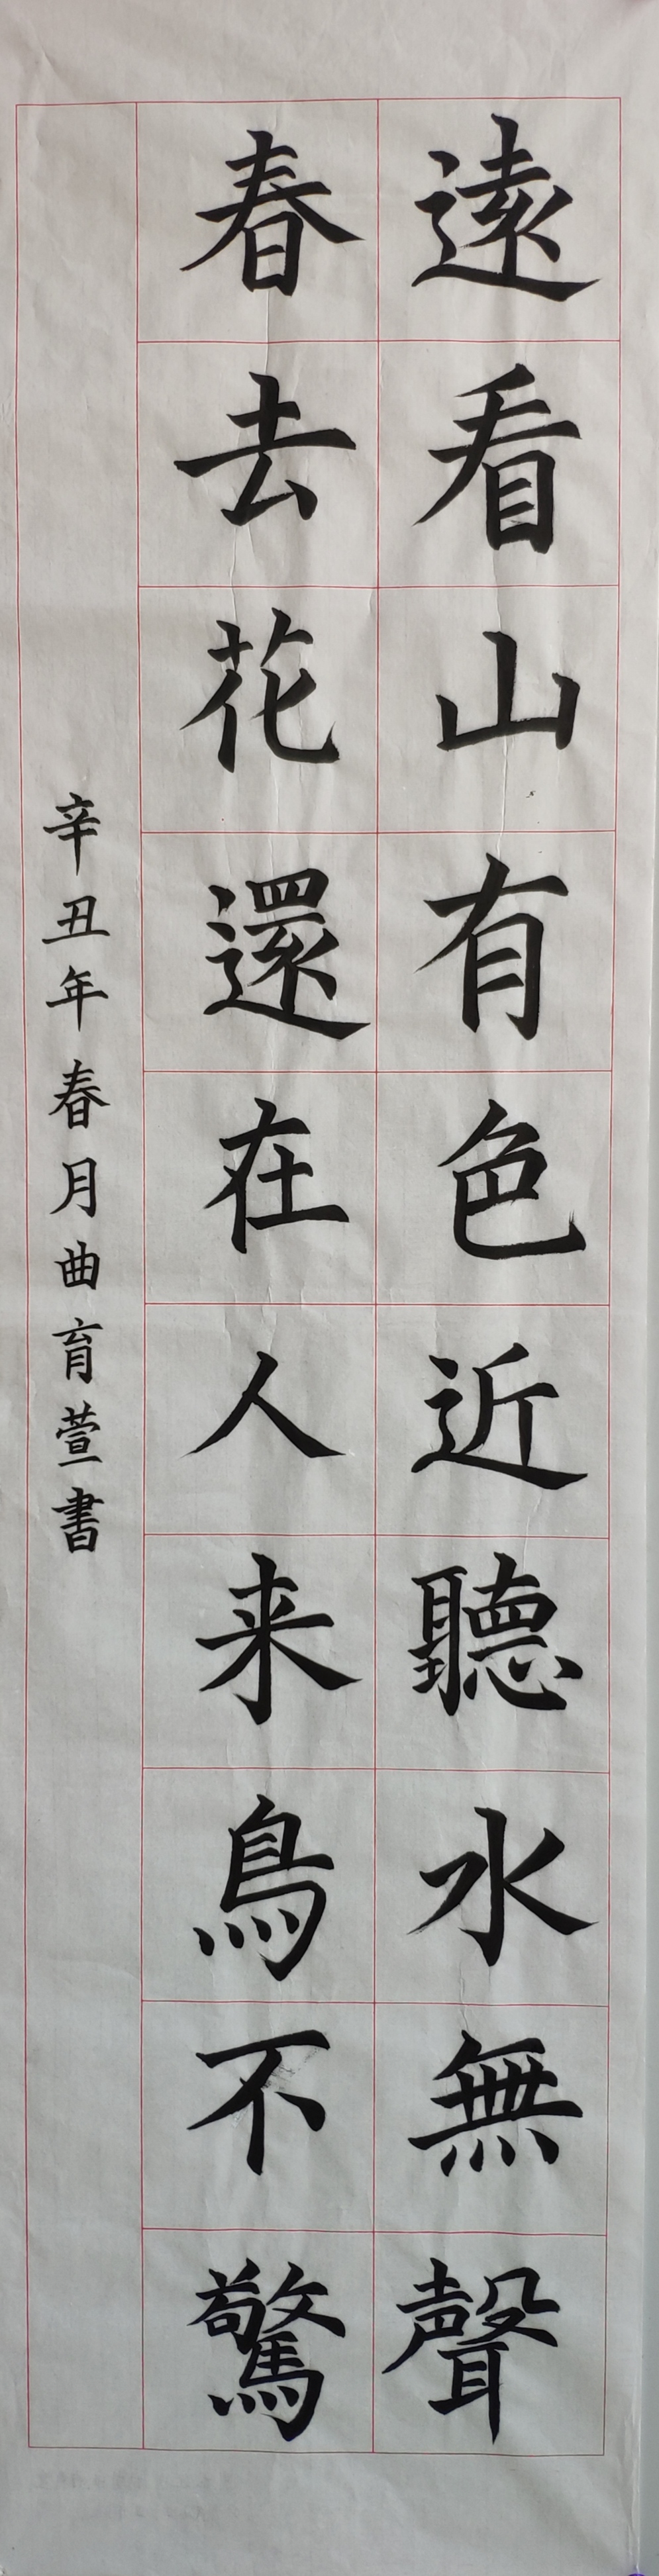 遠看山有色近聽水無聲
春去花還在人来鳥不驚
辛丑年春月曲育萱書